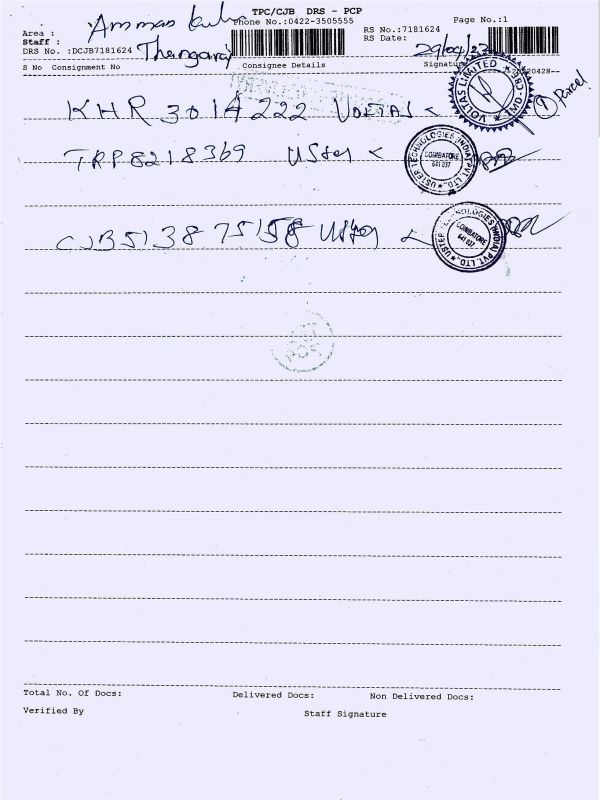 TPC/CJB DRS - PCP
Phone No.:0422-3505555
Page No.:1
Area :
Staff :
Thangaraj
RS No.:7181624
RS Date:
DRS No. :DCJB7181624
S No Consignment No
Consignee Details
Signature
KHR 3014222 VOLTAS
VOLTAS LIMITED
① Parcel
TRP8218369 Uster
USTER TECHNOLOGIES (INDIA) PVT. LTD.
COIMBATORE
641 037
CJB513875158 Uster
USTER TECHNOLOGIES (INDIA) PVT. LTD.
COIMBATORE
641 037
Total No. Of Docs:
Delivered Docs:
Non Delivered Docs:
Verified By
Staff Signature